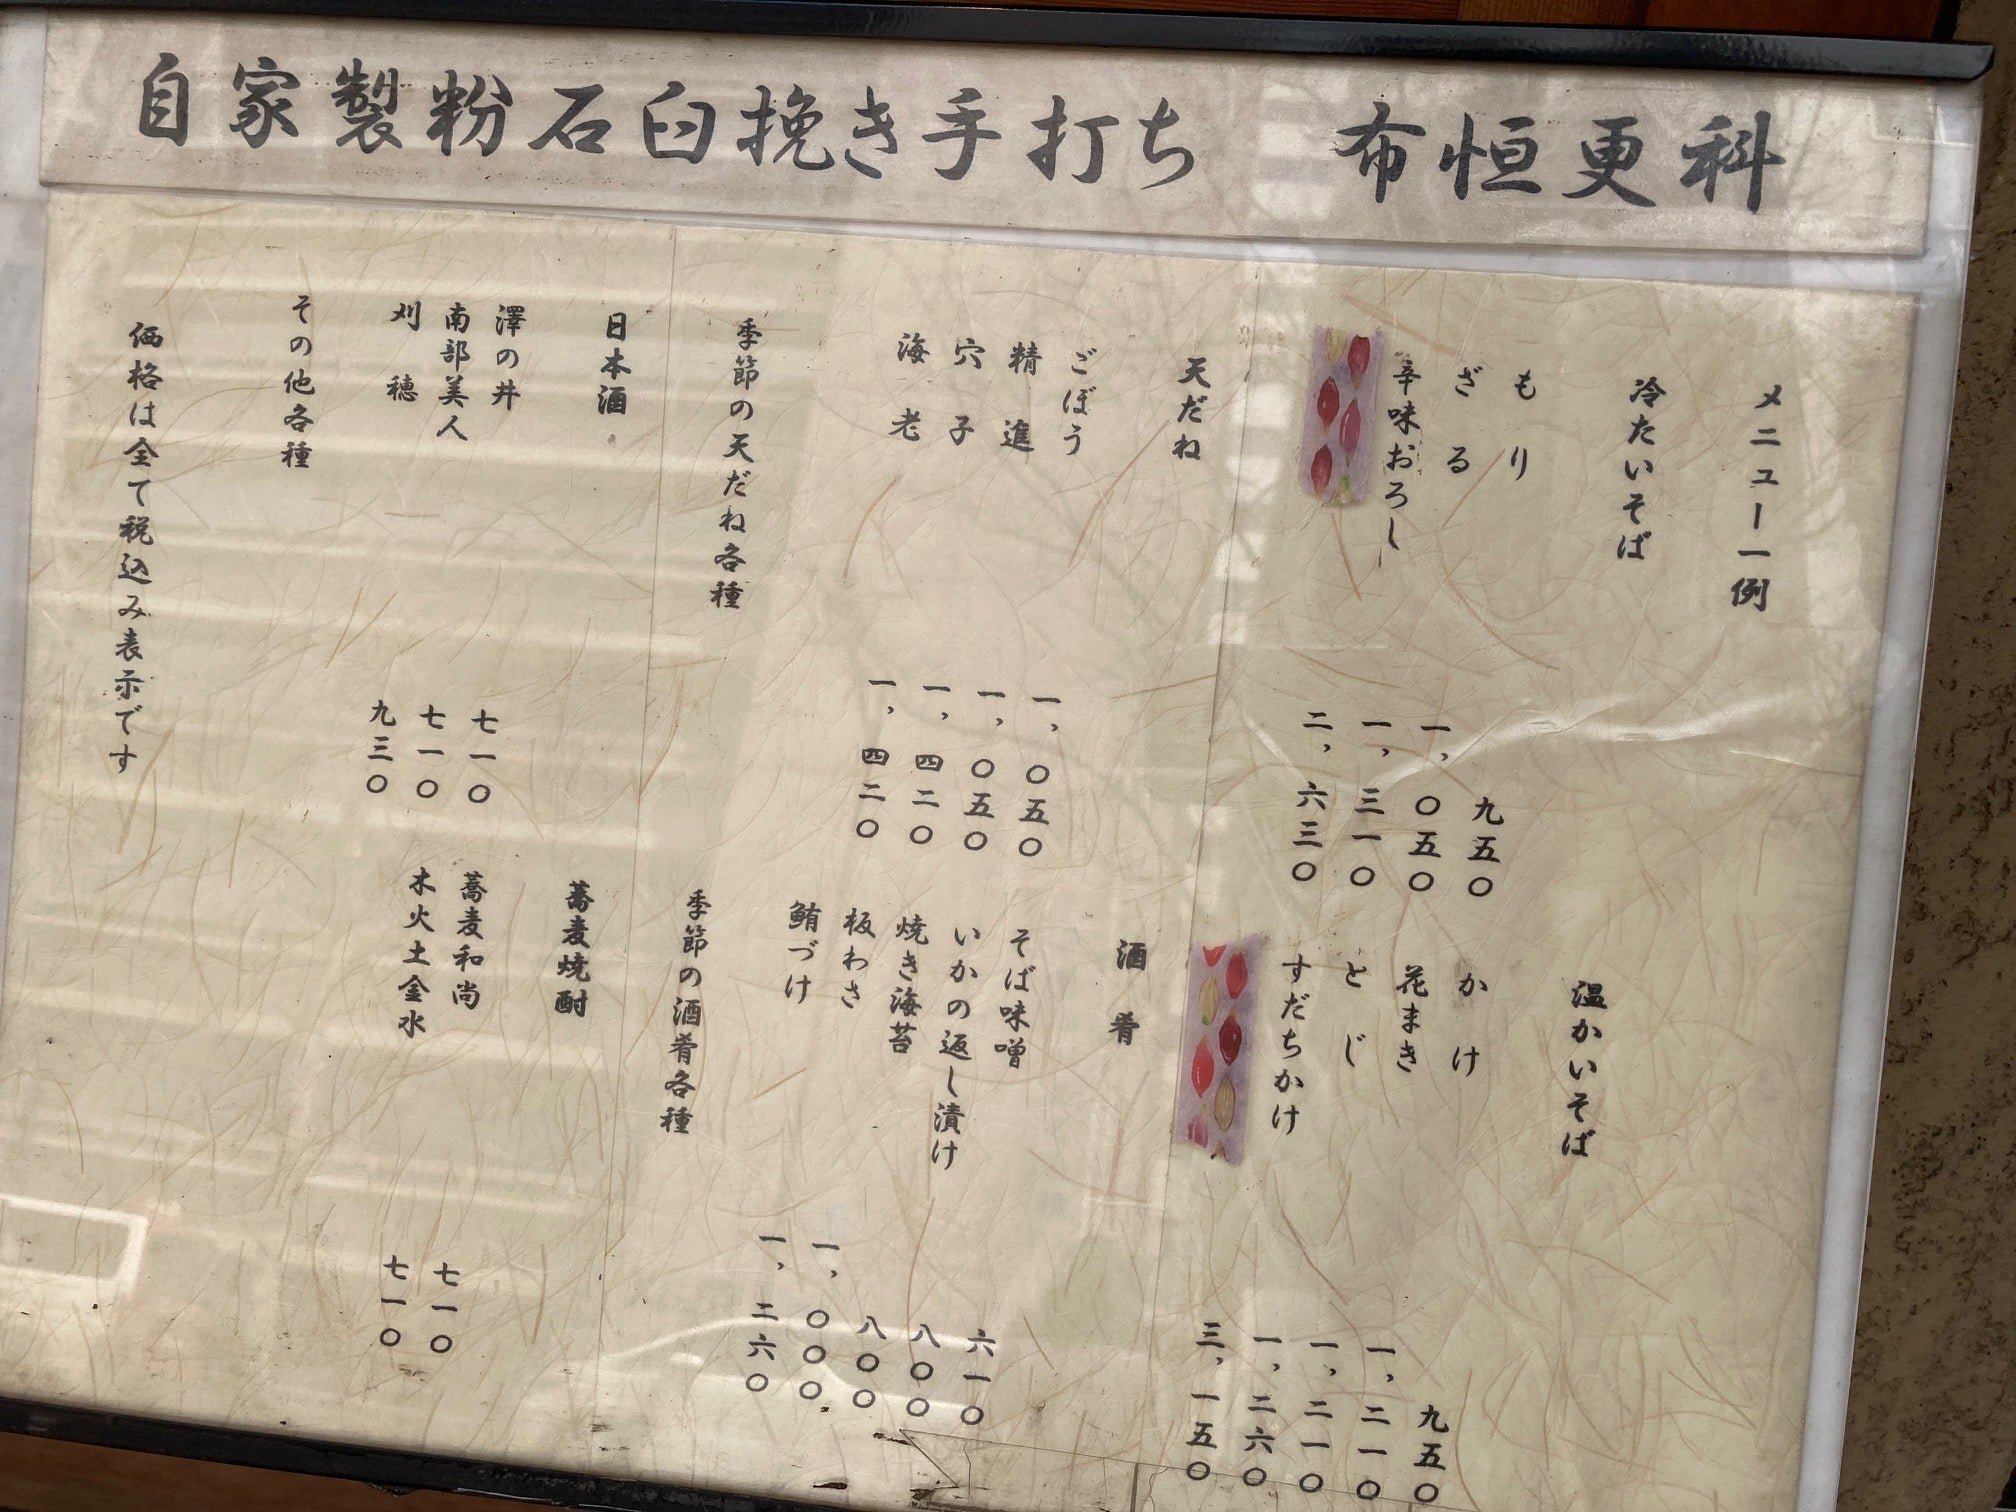 自家製粉石臼挽き手打ち　布恒更科
メニュー一例
冷たいそば
もり　九五〇
ざる　一、〇五〇
辛味おろし　一、三一〇
二、六三〇
温かいそば
かけ　九五〇
花まき　一、二一〇
とじ　一、二一〇
すだちかけ　一、二六〇
三、一五〇
天だね
ごぼう　一、〇五〇
精進　一、〇五〇
穴子　一、四二〇
海老　一、四二〇
季節の天だね各種
酒肴
そば味噌　六一〇
いかの返し漬け　八〇〇
焼き海苔　八〇〇
板わさ　一、〇〇〇
鮪づけ　一、二六〇
季節の酒肴各種
日本酒
澤の井　七一〇
南部美人　七一〇
刈穂　九三〇
その他各種
蕎麦焼酎
蕎麦和尚　七一〇
木火土金水　七一〇
価格は全て税込み表示です